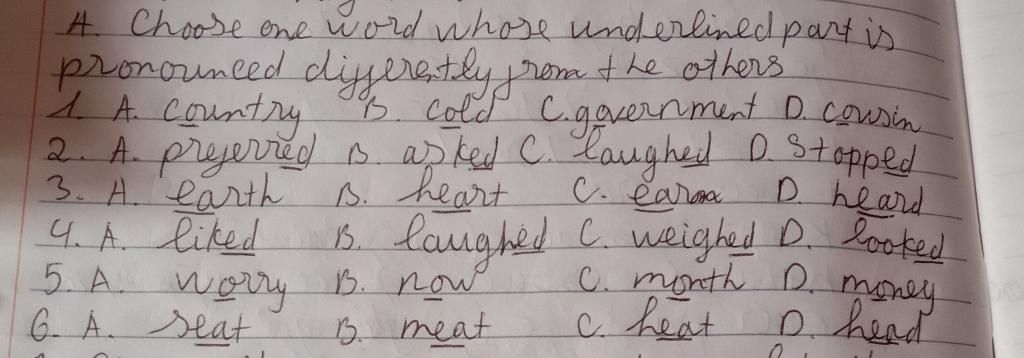 A. Choose one word whose underlined part is
pronounced differently from the others
1. A. country B. cold C. government D. cousin
2. A. preferred B. asked C. laughed D. Stopped
3. A. earth B. heart C. D. heard
4. A. liked B. laughed C. weighed D. looked
5. A. worry B. now C. month D. money
6. A. seat B. meat C. heat D. head